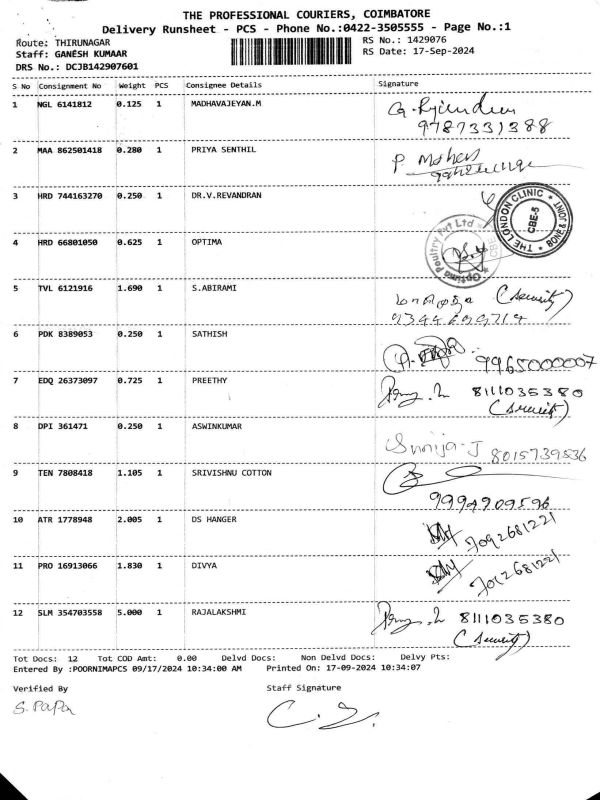 THE PROFESSIONAL COURIERS, COIMBATORE
Delivery Runsheet - PCS - Phone No.:0422-3505555 - Page No.:1
Route: THIRUNAGAR RS No.: 1429076
Staff: GANESH KUMAAR RS Date: 17-Sep-2024
DRS No.: DCJB142907601
S No Consignment No Weight PCS Consignee Details Signature
1 NGL 6141812 0.125 1 MADHAVAJEYAN.M
9787331388
2 MAA 862501418 0.280 1 PRIYA SENTHIL P.
3 HRD 744163270 0.250 1 DR.V.REVANDRAN
THE LONDON CLINIC * BONE & JOINT *
CBE-5
4 HRD 66801050 0.625 1 OPTIMA
Optima Poultry Pvt Ltd
5 TVL 6121916 1.690 1 S.ABIRAMI (Security)
6 PDK 8389053 0.250 1 SATHISH
9965000007
7 EDQ 26373097 0.725 1 PREETHY 8111035380
(Security)
8 DPI 361471 0.250 1 ASWINKUMAR
8015739536
9 TEN 7808418 1.105 1 SRIVISHNU COTTON
9994909596
10 ATR 1778948 2.005 1 DS HANGER
7092681221
11 PRO 16913066 1.830 1 DIVYA
12 SLM 354703558 5.000 1 RAJALAKSHMI 8111035380
(Security)
Tot Docs: 12 Tot COD Amt: 0.00 Delvd Docs: Non Delvd Docs: Delvy Pts:
Entered By :POORNIMAPCS 09/17/2024 10:34:00 AM Printed On: 17-09-2024 10:34:07
Verified By Staff Signature
S. PaPa